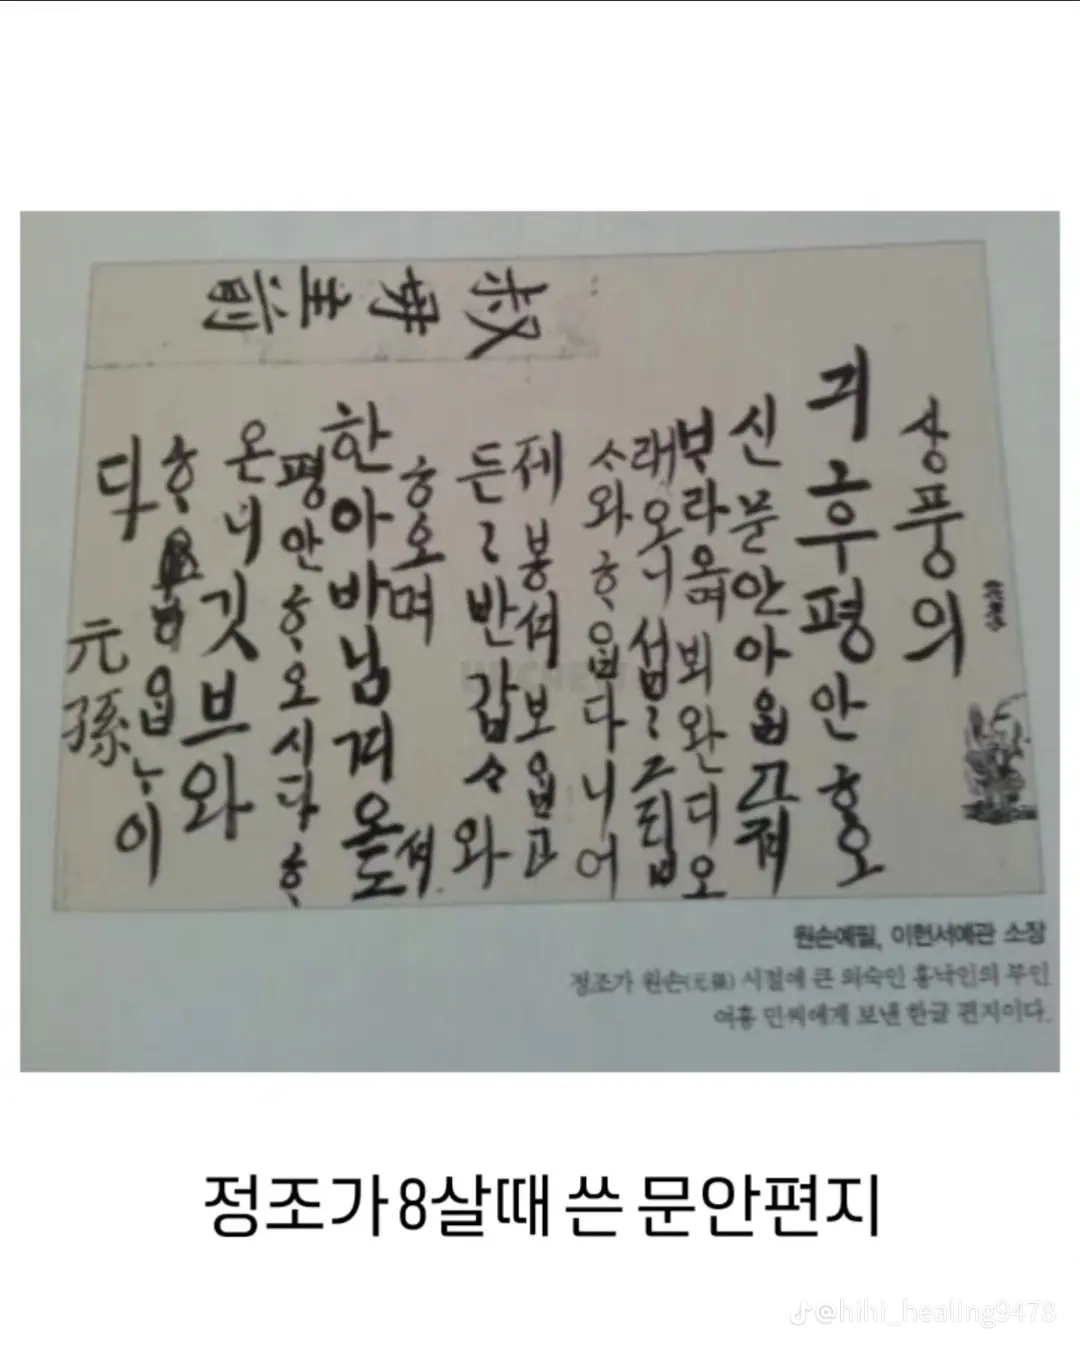 叔母主前
상풍의
긔후평안ᄒᆞ오
신문안아ᄋᆞᆸ고져
ᄇᆞ라오며 뵈완디오
래오니 섭섭 그립
ᄉᆞ와 ᄒᆞᄋᆞᆸ다니 어
제 봉셔 보ᄋᆞᆸ고
든든 반갑ᄉᆞ와
ᄒᆞ오며
한아바님겨오셔도
평안ᄒᆞ오시다 ᄒᆞ
온니 깃브와
ᄒᆞᄋᆞᆸᄂᆞ이
다
元孫
원손예필, 이헌서예관 소장
정조가 원손(元孫) 시절에 큰 외숙인 홍낙인의 부인
여흥 민씨에게 보낸 한글 편지이다.
정조가 8살때 쓴 문안편지
@hihi_healing9478